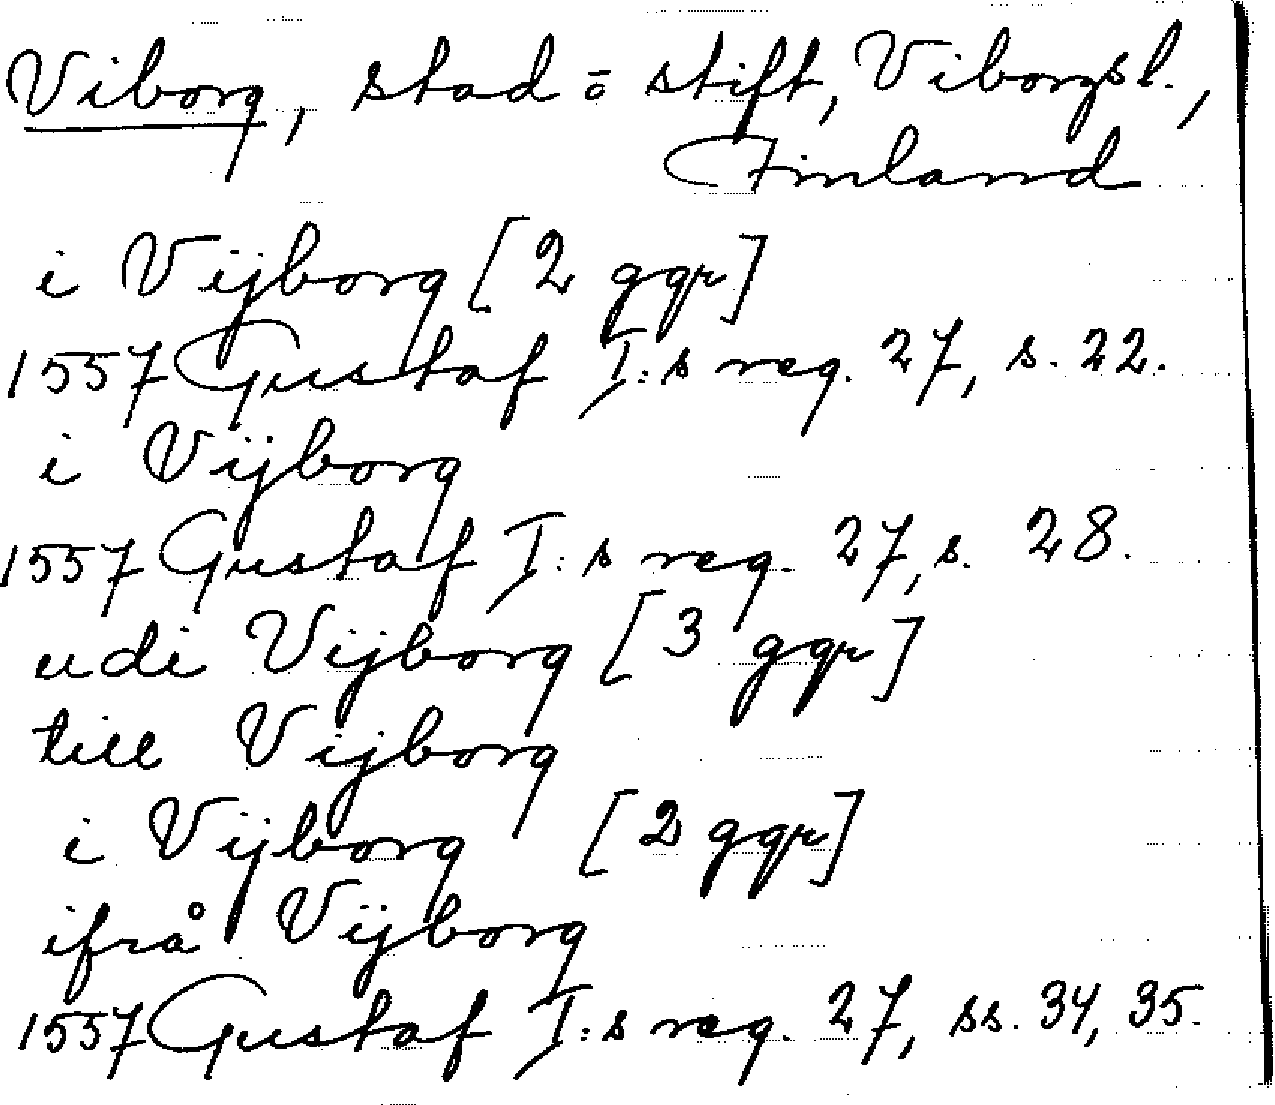 Viborg, stad o stift, Viborgsl.,
Finland
i Vijborg [2 ggr]
1557 Gustaf I:s reg. 27, s. 22.
i Vijborg
1557 Gustaf I:s reg. 27, s. 28.
udi Vijborg [3 ggr]
till Vijborg
i Vijborg [2 ggr]
ifrå Vijborg
1557 Gustaf I:s reg. 27, ss. 34, 35.